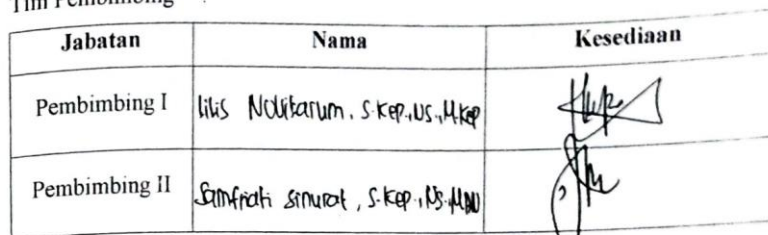 Tim Pembimbing
Jabatan Nama Kesediaan
Pembimbing I Lilis Novitarum, S.Kep.,Ns.,M.Kep
Pembimbing II Samfriati Sinurat, S.Kep.,Ns.,MAN